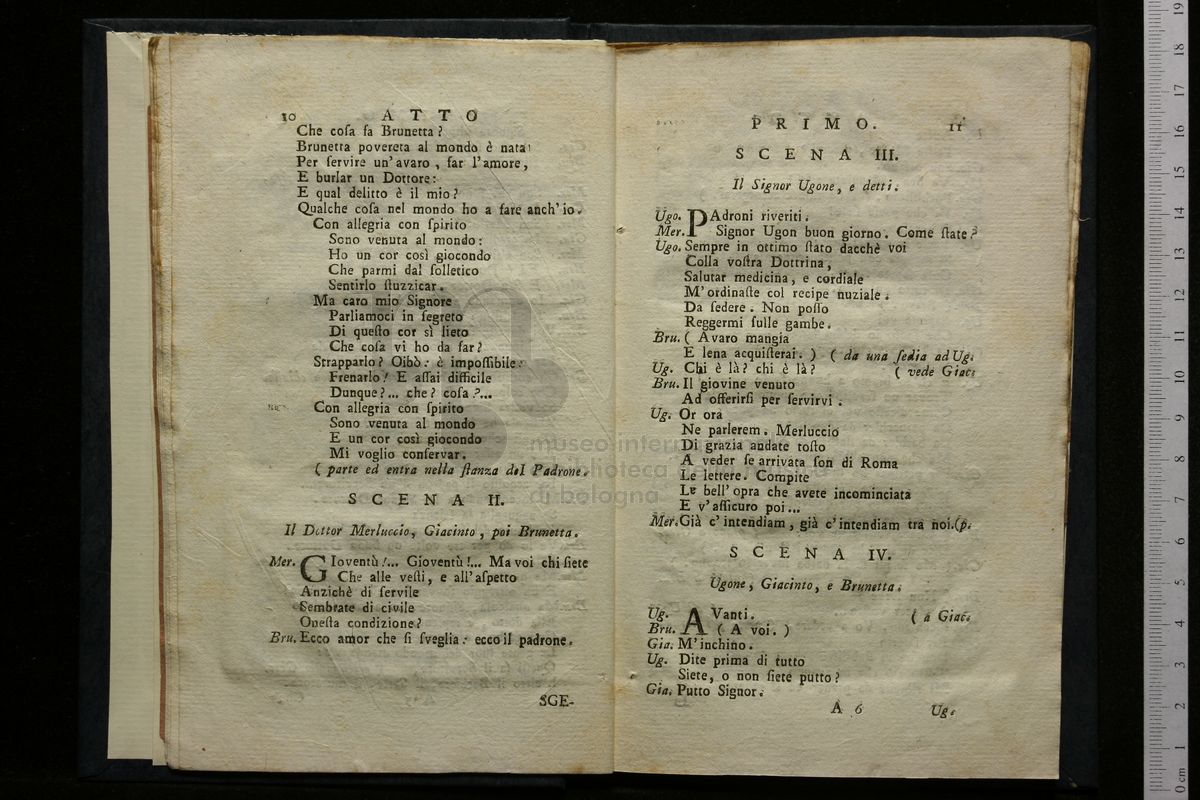 10 ATTO
Che coſa fa Brunetta?
Brunetta povereta al mondo è nata
Per ſervire un' avaro, far l'amore,
E burlar un Dottore:
E qual delitto è il mio?
Qualche coſa nel mondo ho a fare anch' io.
Con allegria con ſpirito
Sono venuta al mondo:
Ho un cor così giocondo
Che parmi dal ſolletico
Sentirlo ſtuzzicar.
Ma caro mio Signore
Parliamoci in ſegreto
Di queſto cor sì lieto
Che coſa vi ho da far?
Strapparlo? Oibò: è impoſſibile:
Frenarlo! E aſſai difficile
Dunque?... che? coſa?...
Con allegria con ſpirito
Sono venuta al mondo
E un cor così giocondo
Mi voglio conſervar.
( parte ed entra nella ſtanza del Padrone.
SCENA II.
Il Dottor Merluccio, Giacinto, poi Brunetta.
Mer. GIoventù!... Gioventù!... Ma voi chi ſiete
Che alle veſti, e all' aſpetto
Anzichè di ſervile
Sembrate di civile
Oneſta condizione?
Bru. Ecco amor che ſi ſveglia: ecco il padrone.
SGE-
PRIMO. 11
SCENA III.
Il Signor Ugone, e detti.
Ugo. PAdroni riveriti.
Mer. Signor Ugon buon giorno. Come ſtate?
Ugo. Sempre in ottimo ſtato dacchè voi
Colla voſtra Dottrina,
Salutar medicina, e cordiale
M' ordinaſte col recipe nuziale.
Da ſedere. Non poſſo
Reggermi ſulle gambe.
Bru. ( Avaro mangia
E lena acquiſterai. ) ( da una ſedia ad Ug.
Ug. Chi è là? chi è là? ( vede Giac.
Bru. Il giovine venuto
Ad offerirſi per ſervirvi.
Ug. Or ora
Ne parlerem. Merluccio
Di grazia andate toſto
A veder ſe arrivata ſon di Roma
Le lettere. Compite
Le bell' opra che avete incominciata
E v' aſſicuro poi...
Mer. Già c' intendiam, già c' intendiam tra noi. (p.
SCENA IV.
Ugone, Giacinto, e Brunetta.
Ug. AVanti. ( a Giac.
Bru. ( A voi. )
Gia. M' inchino.
Ug. Dite prima di tutto
Siete, o non ſiete putto?
Gia. Putto Signor.
A 6 Ug.
museo internazionale
e biblioteca della musica
di bologna